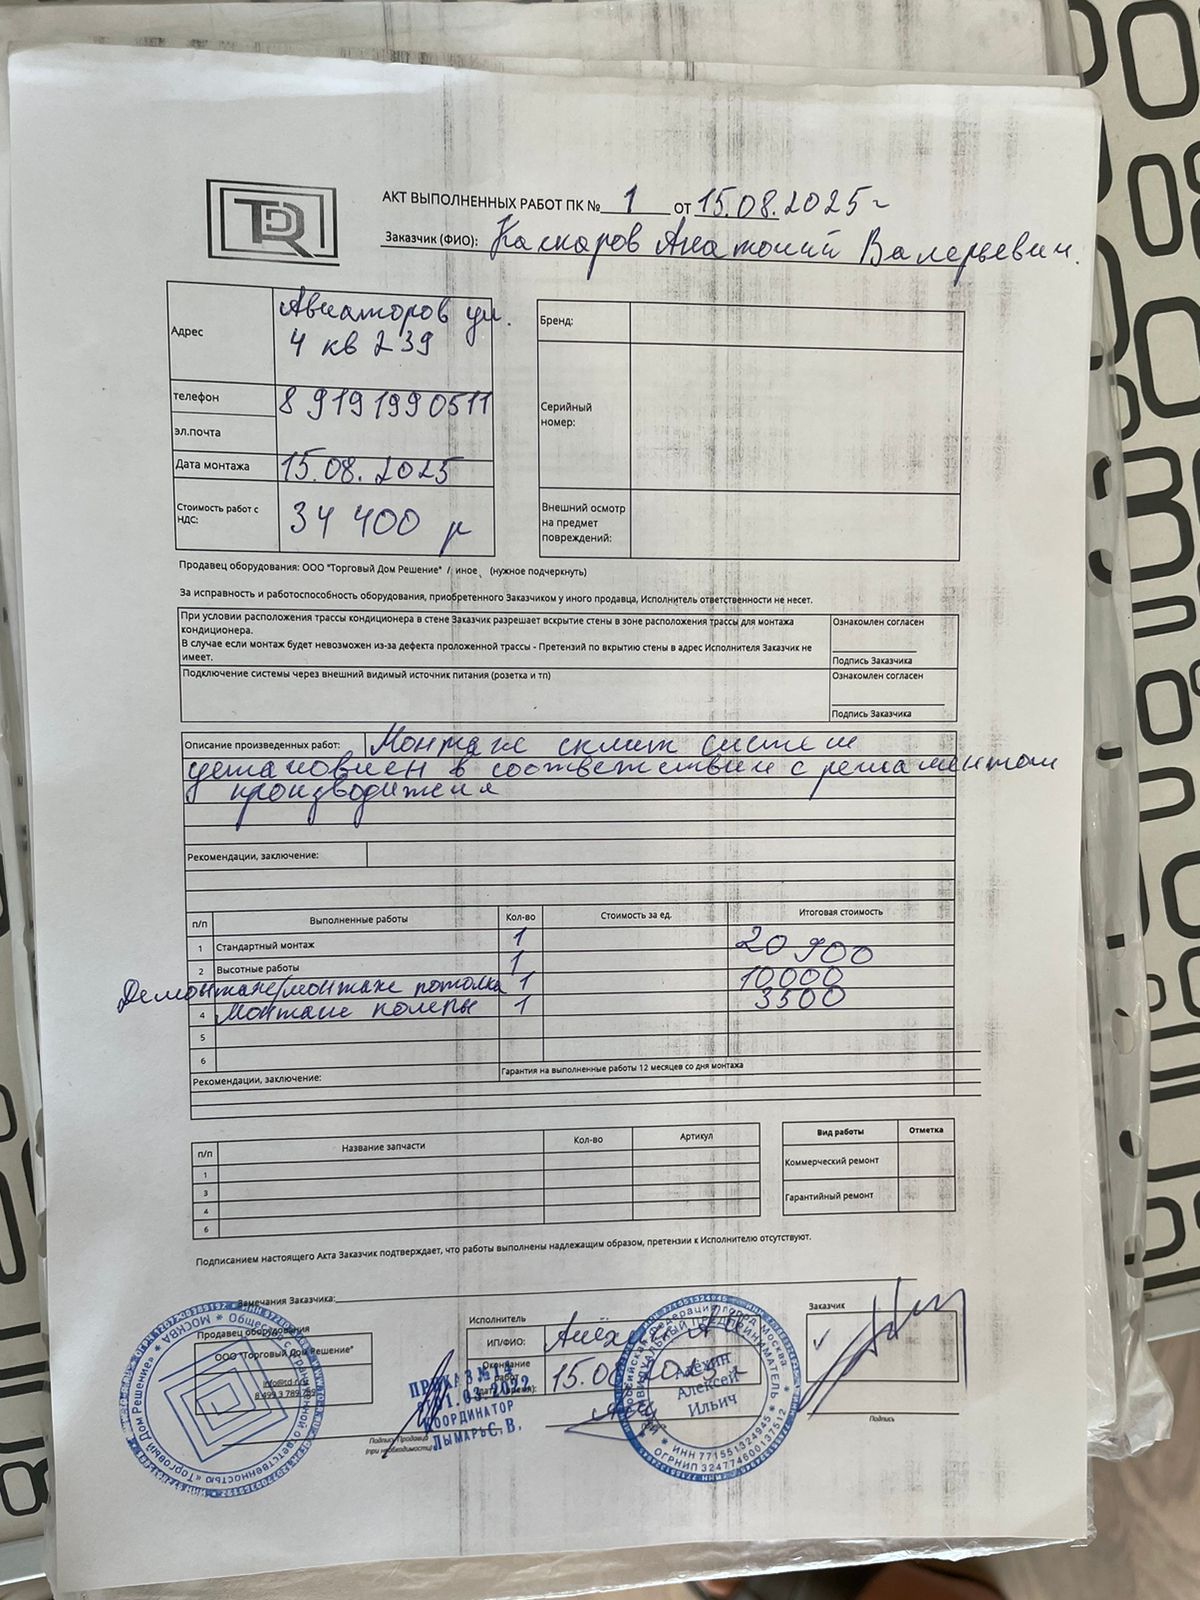 TDR
АКТ ВЫПОЛНЕННЫХ РАБОТ ПК № 1 от 15.08.2025г
Заказчик (ФИО): Каскаров Анатолий Валерьевич.
Адрес
Авиаторов ул.
4 кв 239
телефон
8 919 199 0511
эл.почта
Дата монтажа
15.08.2025
Стоимость работ с НДС:
34 400 р
Бренд:
Серийный номер:
Внешний осмотр на предмет повреждений:
Продавец оборудования: ООО "Торговый Дом Решение" / иное (нужное подчеркнуть)
За исправность и работоспособность оборудования, приобретенного Заказчиком у иного продавца, Исполнитель ответственности не несет.
При условии расположения трассы кондиционера в стене Заказчик разрешает вскрытие стены в зоне расположения трассы для монтажа
кондиционера.
В случае если монтаж будет невозможен из-за дефекта проложенной трассы - Претензий по вкрытию стены в адрес Исполнителя Заказчик не
имеет.
Ознакомлен согласен
Подпись Заказчика
Подключение системы через внешний видимый источник питания (розетка и тп)
Ознакомлен согласен
Подпись Заказчика
Описание произведенных работ: Монтаж сплит систем
установлен в соответствии с регламентом
производителя
Рекомендации, заключение:
п/п Выполненные работы Кол-во Стоимость за ед. Итоговая стоимость
1 Стандартный монтаж 1 20 900
2 Высотные работы 1
Демонтаж/монтаж потолка 1 10000
4 Монтаж помпы 1 3500
5
6
Рекомендации, заключение:
Гарантия на выполненные работы 12 месяцев со дня монтажа
п/п Название запчасти Кол-во Артикул
1
3
4
6
Вид работы Отметка
Коммерческий ремонт
Гарантийный ремонт
Подписанием настоящего Акта Заказчик подтверждает, что работы выполнены надлежащим образом, претензии к Исполнителю отсутствуют.
Замечания Заказчика:
Продавец оборудования
ООО "Торговый Дом Решение"
Подпись Продавца
(при необходимости)
ПРИКАЗ №14
01.03.2022
КООРДИНАТОР
ЛЫМАРЬ С. В.
Исполнитель
ИП/ФИО: Алёхин А И
Окончание работ
Российская Федерация город Москва
ИНДИВИДУАЛЬНЫЙ ПРЕДПРИНИМАТЕЛЬ
Алёхин
Алексей
Ильич
ИНН 771551324945
ОГРНИП 324774600137512
Заказчик
Подпись